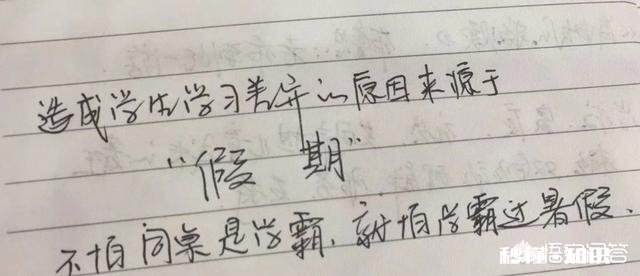 造成学生学习差异的原因来源于
“假 期”
不怕同桌是学霸，就怕学霸过暑假．
悟空问答